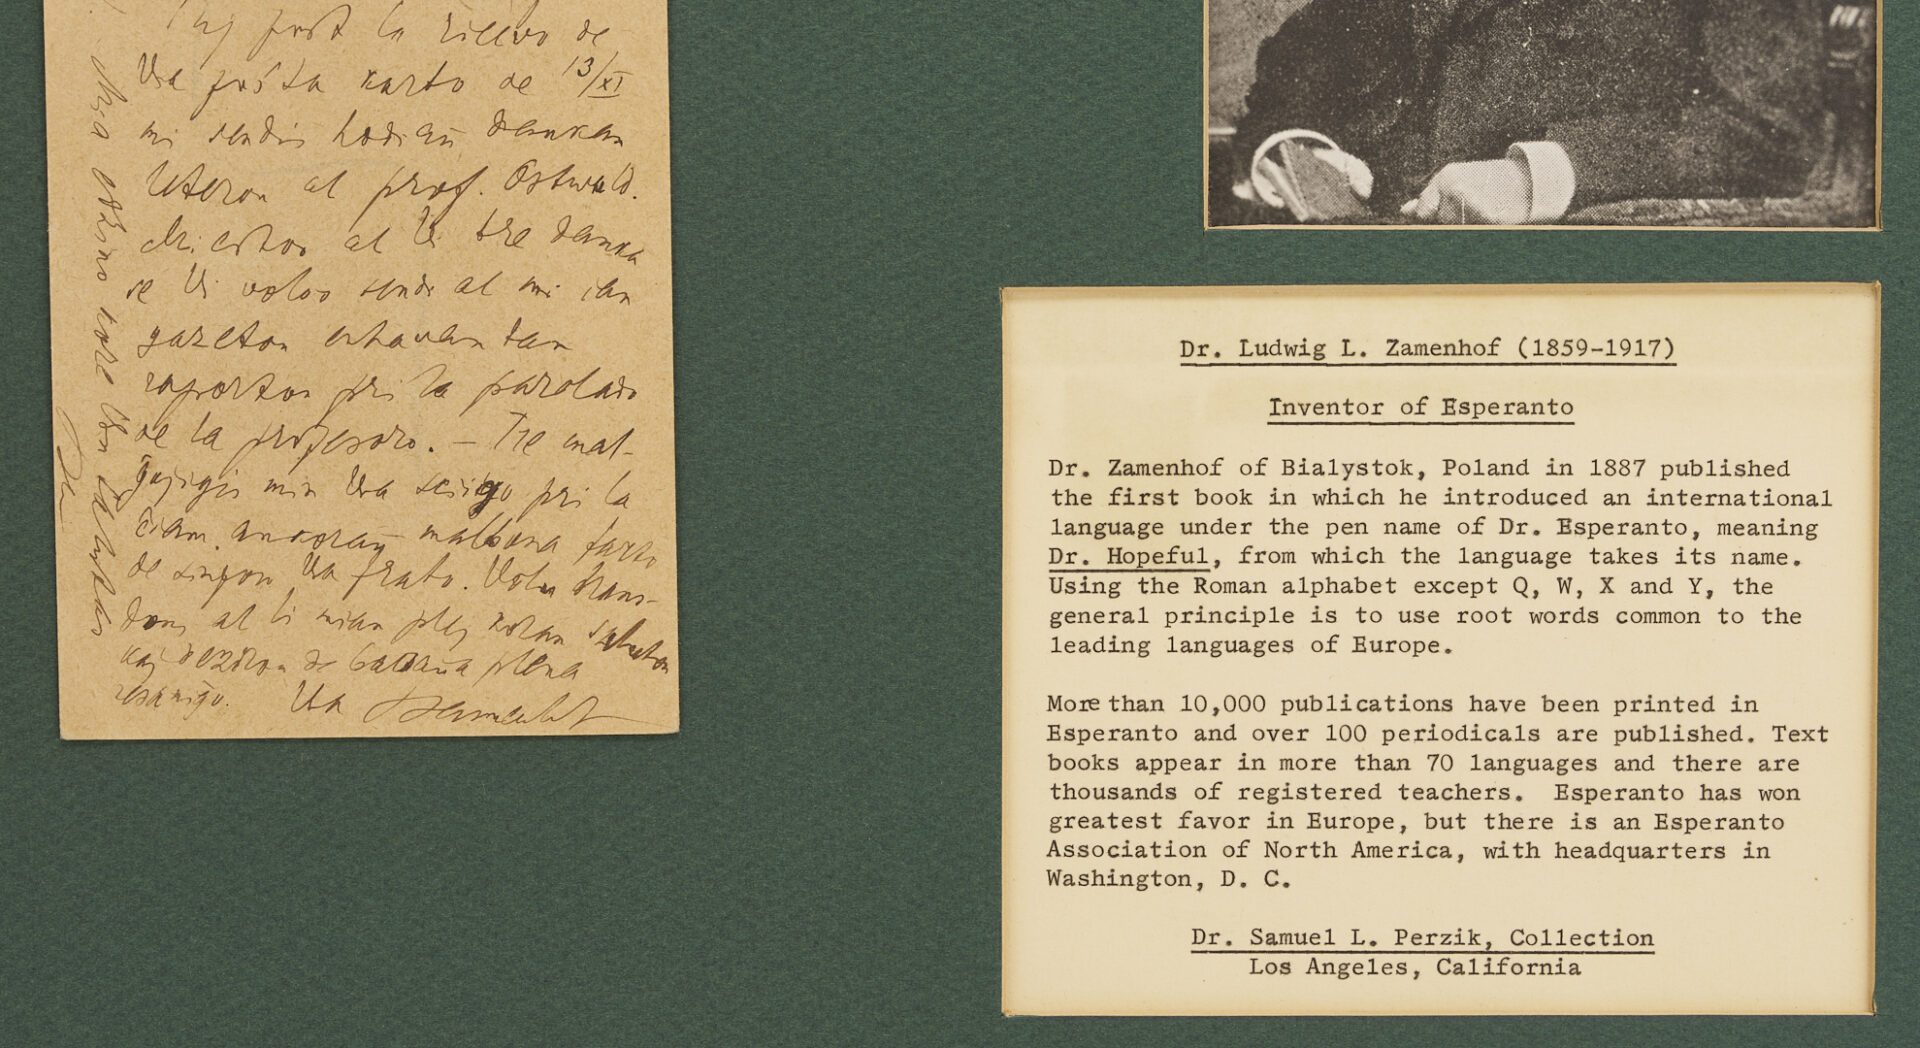 Tuj post la ricevo de
Via poŝta karto de 13/XI
mi sendis hodiaŭ dankan
leteron al prof. Ostwald.
Mi estos al Vi tre danka
se Vi volos sendi al mi ian
gazeton enhavantan
raporton pri la parolado
de la profesoro. — Tre mal-
ĝojigis min Via sciigo pri la
ĉiam ankoraŭ malbona farto
de Via frato. Volu trans-
doni al li mian plej koran saluton
kaj deziron de baldaŭa plena
resaniĝo. Via Zamenhof
Mia edzino kore Vin salutas
Dr. Ludwig L. Zamenhof (1859-1917)
Inventor of Esperanto
Dr. Zamenhof of Bialystok, Poland in 1887 published
the first book in which he introduced an international
language under the pen name of Dr. Esperanto, meaning
Dr. Hopeful, from which the language takes its name.
Using the Roman alphabet except Q, W, X and Y, the
general principle is to use root words common to the
leading languages of Europe.
More than 10,000 publications have been printed in
Esperanto and over 100 periodicals are published. Text
books appear in more than 70 languages and there are
thousands of registered teachers. Esperanto has won
greatest favor in Europe, but there is an Esperanto
Association of North America, with headquarters in
Washington, D. C.
Dr. Samuel L. Perzik, Collection
Los Angeles, California